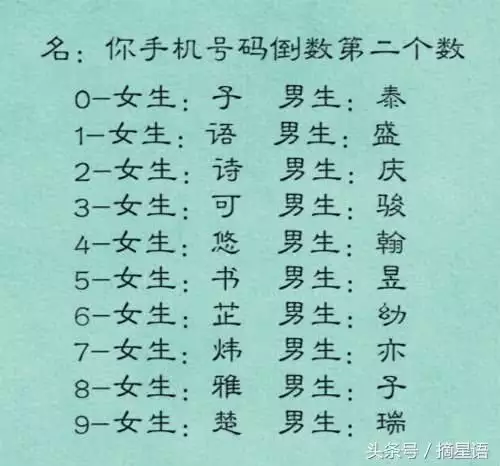 名：你手机号码倒数第二个数
0-女生：子 男生：泰
1-女生：语 男生：盛
2-女生：诗 男生：庆
3-女生：可 男生：骏
4-女生：悠 男生：翰
5-女生：书 男生：昱
6-女生：芷 男生：幼
7-女生：炜 男生：亦
8-女生：雅 男生：子
9-女生：楚 男生：瑞
头条号／摘星语